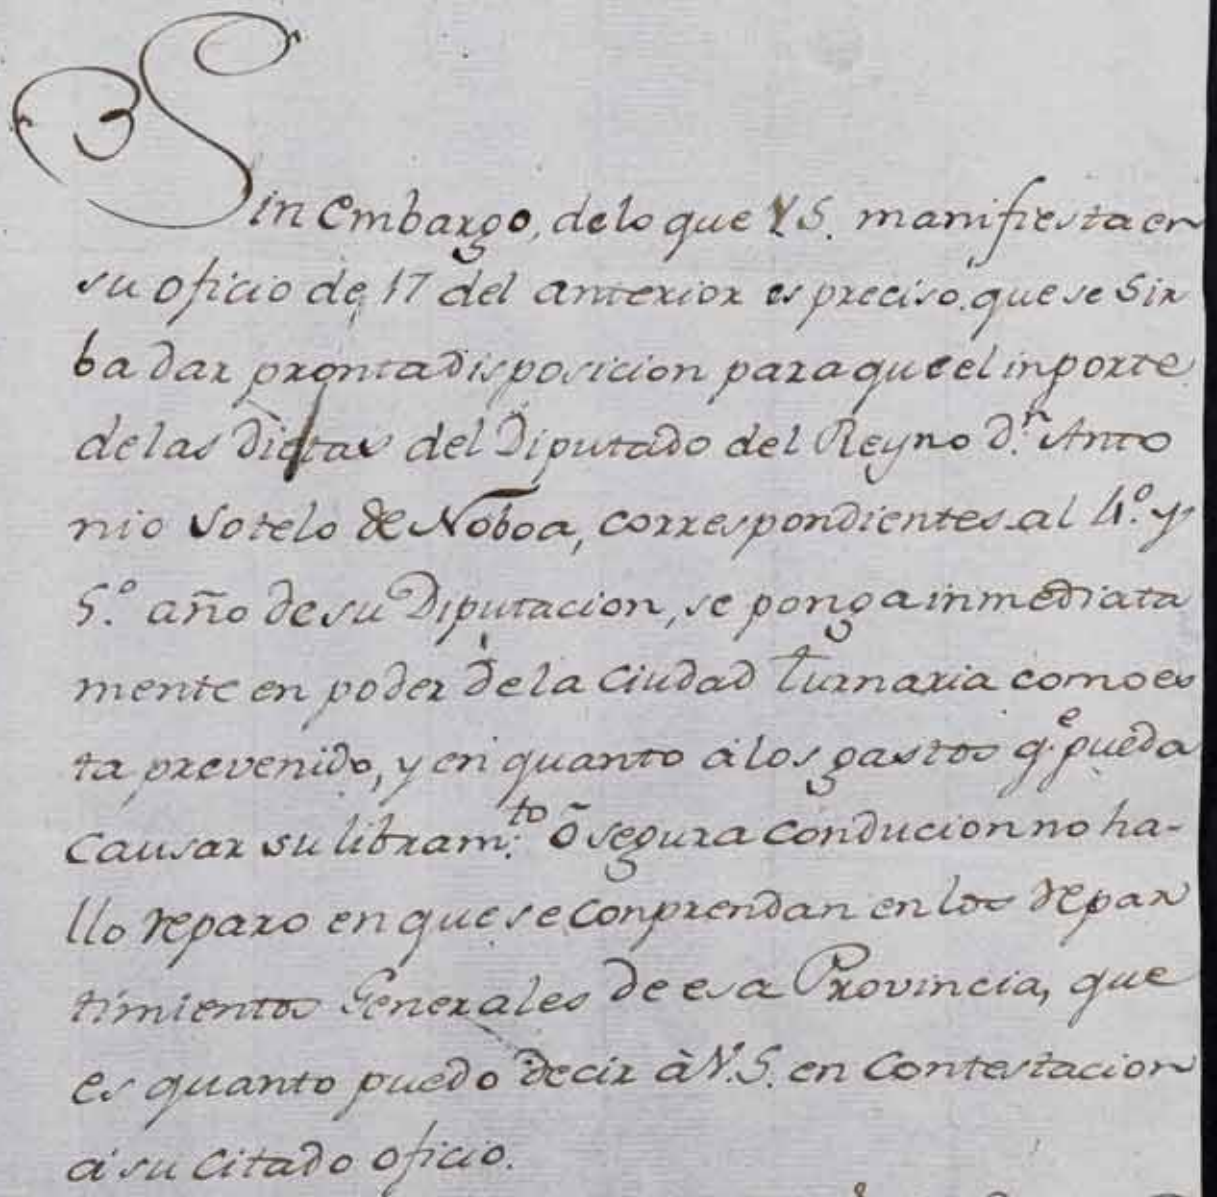 Sin embargo, de lo que V.S. manifiesta en
su oficio de 17 del anterior es preciso que se Sir
ba dar pronta disposicion para que el inporte
de las dietas del Diputado del Reyno d.n Anto
nio Sotelo de Noboa, correspondientes al 4.º y
5.º año de su Diputacion, se ponga inmediata
mente en poder de la Ciudad turnaria como es
ta prevenido, y en quanto à los gastos q.e pueda
Causar su libram.to õ segura conducion no ha-
llo reparo en que se Conprendan en los repar
timientos Generales de esa Provincia, que
es quanto puedo decir à V.S. en Contestacion
a su Citado oficio.